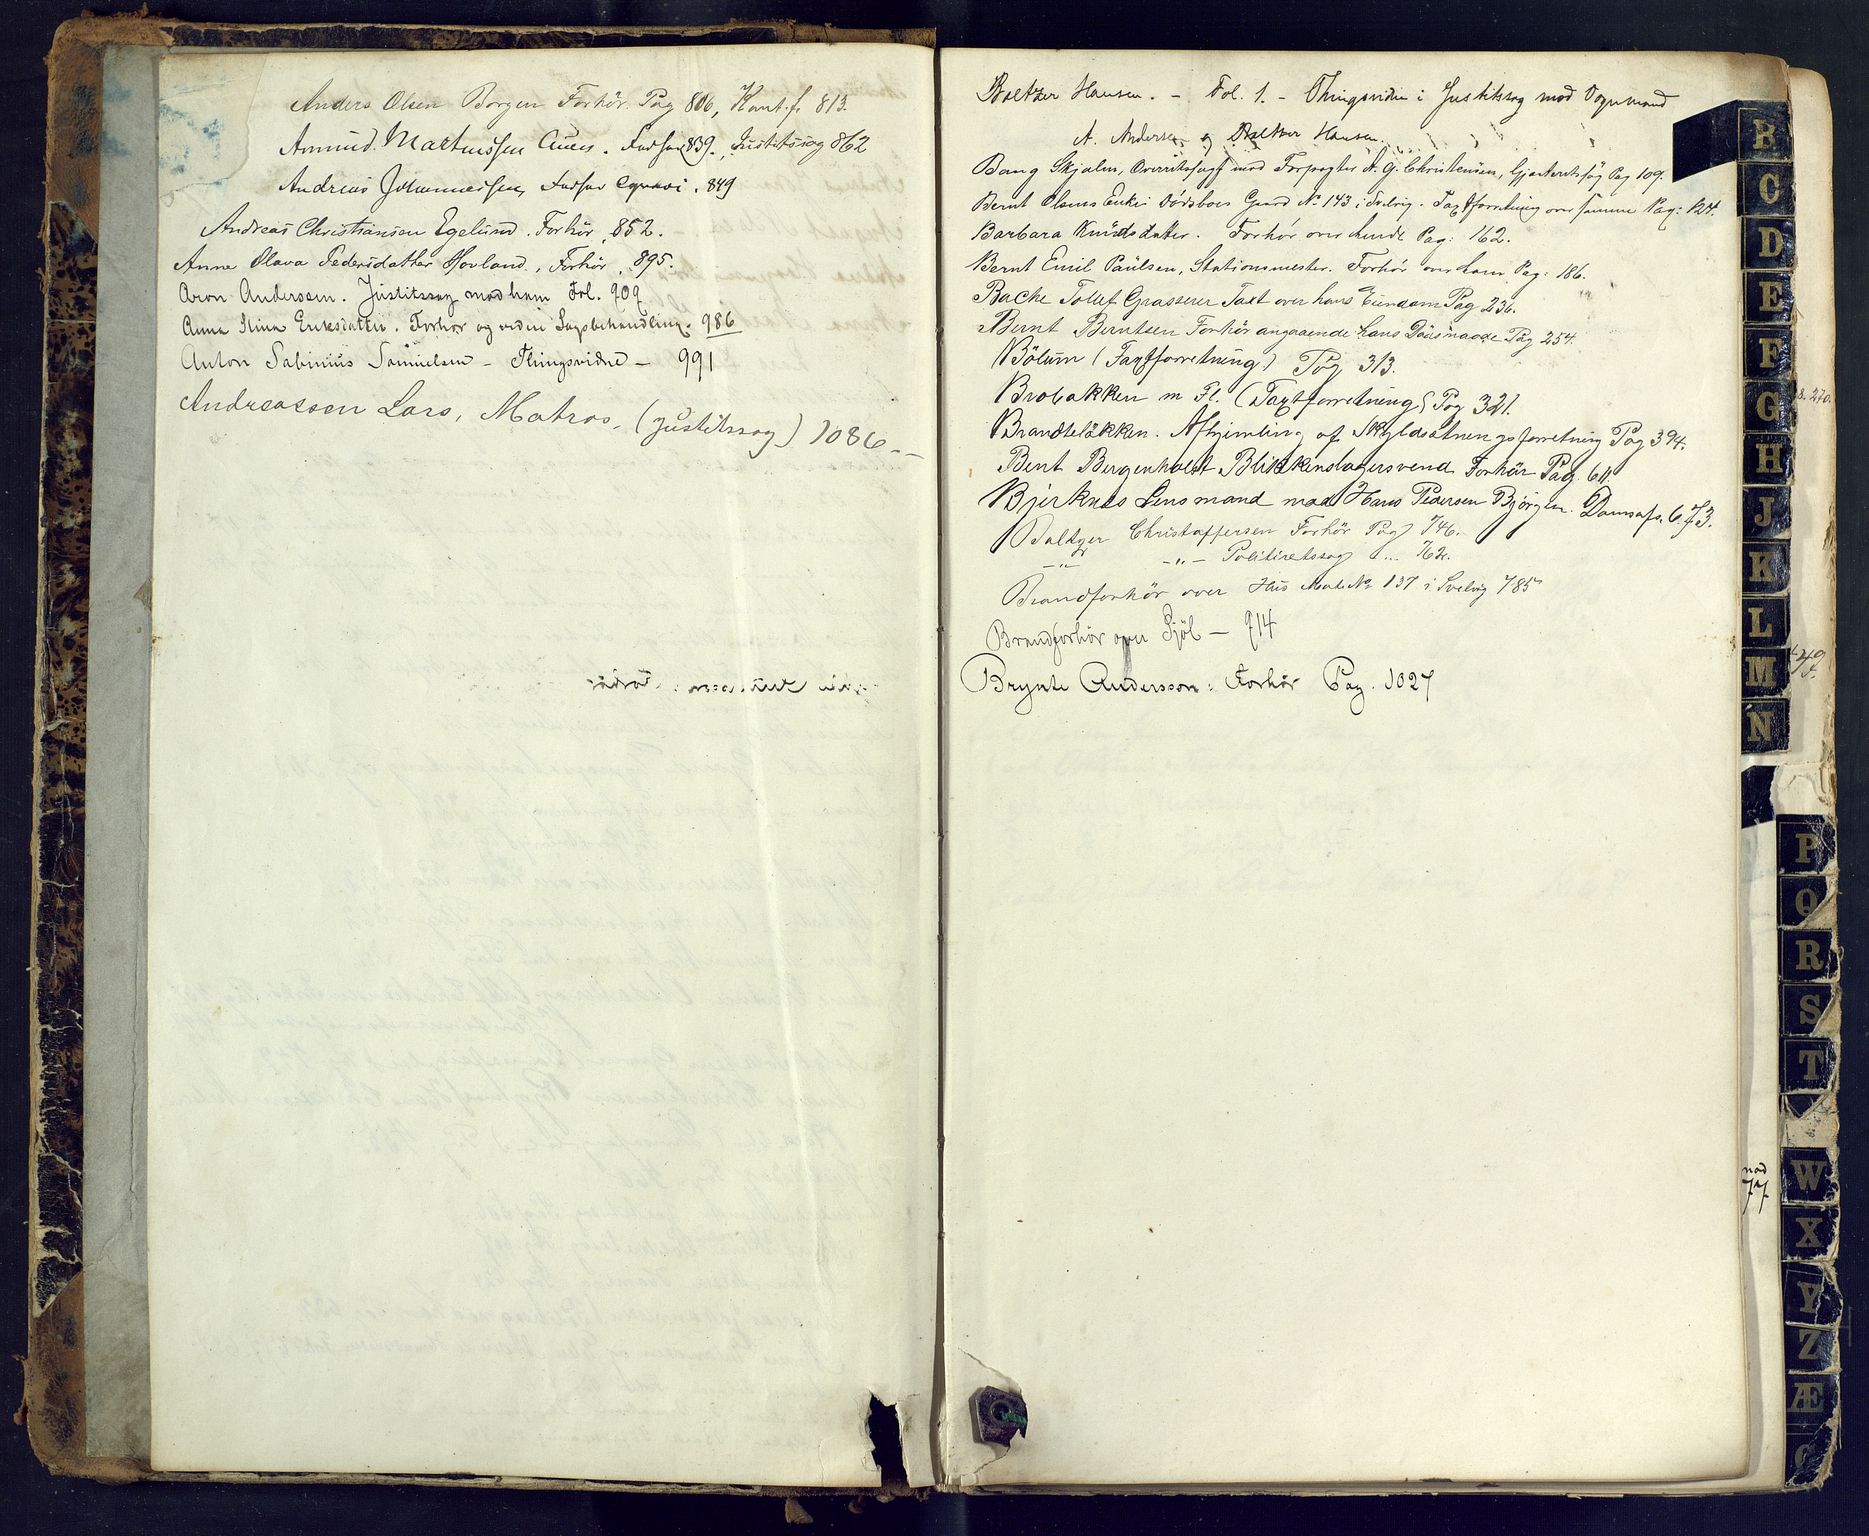 Anders Olsen Borgen Forhör. Pag 806, Kont.f. 813.
Amund. Martinssen Aues. 839. Justitssag 862
Andreas Johannesen, 849
Andreas Christiansen Egelund. Forhör, 852.
Anne Olava Pedersdatter Hovland, Forhör, 895.
Aron Andersen. Justitssag mod ham Fol. 909
Anna Stina Eriksdatter. Forhör og videre Sagsbehandling. 986
Anton Sabinius Samuelsen – Thingsvidne – 991
Andreassen Lars, Matros, (Justitssag) 1086
Baltzer Hansen. – Fol. 1. – Thingsvidne i Justitssag mod
A. Andersen og Baltzer Hansen.
Bang Skjalm, mod A. G. Christensen, Pag 109.
Bernt Olsens Enkes Gaard No 143 i Svelvig. Taxtforretning over samme Pag: 124.
Barbara Knudsdatter. Forhör over hende Pag: 162.
Bernt Emil Paulsen, Stationsmester. Forhör over ham Pag: 186.
Bache Tollef Taxt over hans Eiendom Pag 236.
Bernt Berntsen Forhör angaaende hans Dödsmaade Pag 254.
Bölum (Taxtforretning) Pag 313.
Brobakken m Fl. (Taxtforretning) Pag 321.
Brandtelökken. Afhjemling af Skyldsætningsforretning Pag 394.
Bent Bergenholdt Blikkenslagersvend Forhör Pag. 611.
Bjerknes Lensmand mod Hans Pedersen Björgen. 673.
Baltzer Christoffersen Forhör Pag 746.
–„– –„– Politiretssag ... 762.
Brandforhör over Hus Mat. No 137 i Svelvig 785
Brandforhör over – 914
Brynte Andersson: Forhör Pag. 1027
B
C
D
E
F
G
H
J
K
L
M
N
P
Q
R
S
T
W
X
Y
Z
Æ
270.
49
mod
77